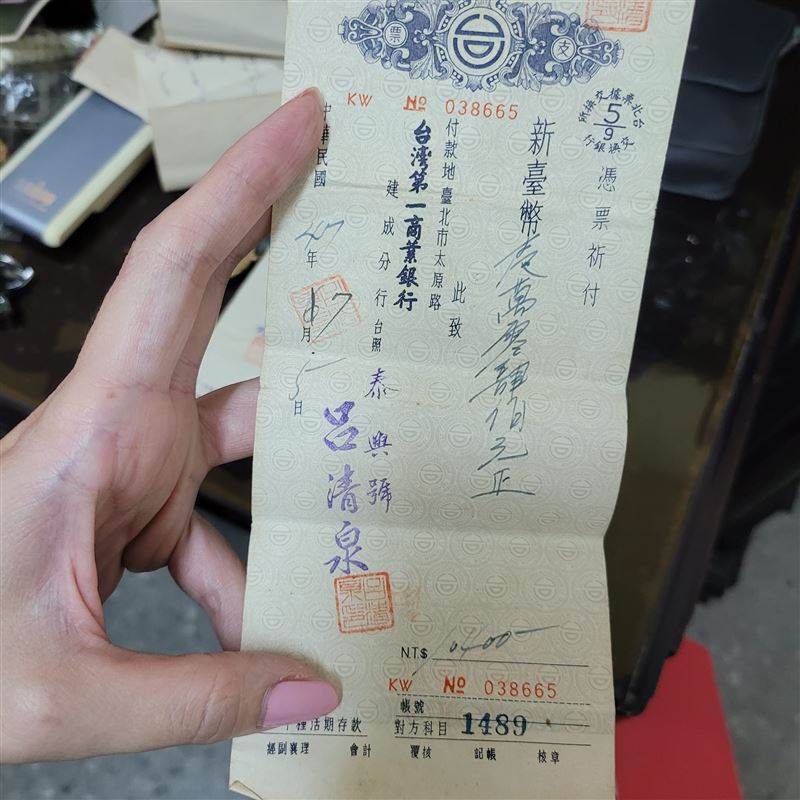 票
支
KW No 038665
台北票據交換所
5/9
交換銀行
憑票祈付
新臺幣壹萬零肆佰元正
此致
付款地臺北市太原路
台灣第一商業銀行
建成分行台照
泰興號
呂清泉
中華民國47年 月5日
17
NT.$ 10400-
KW No 038665
帳號
種活期存款
對方科目 1489
經副襄理 會計 覆核 記帳 核章